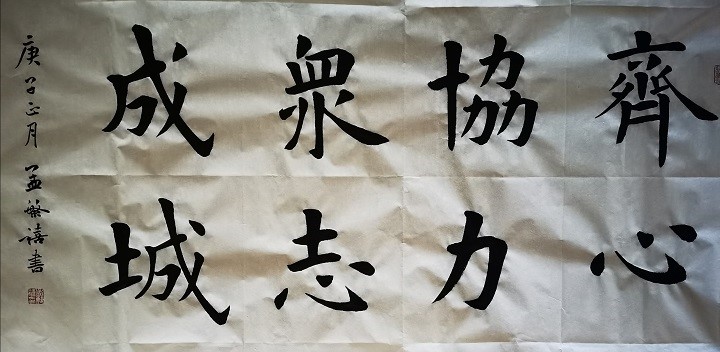 齊心
協力
眾志
成城
庚子正月 孟繁禧書